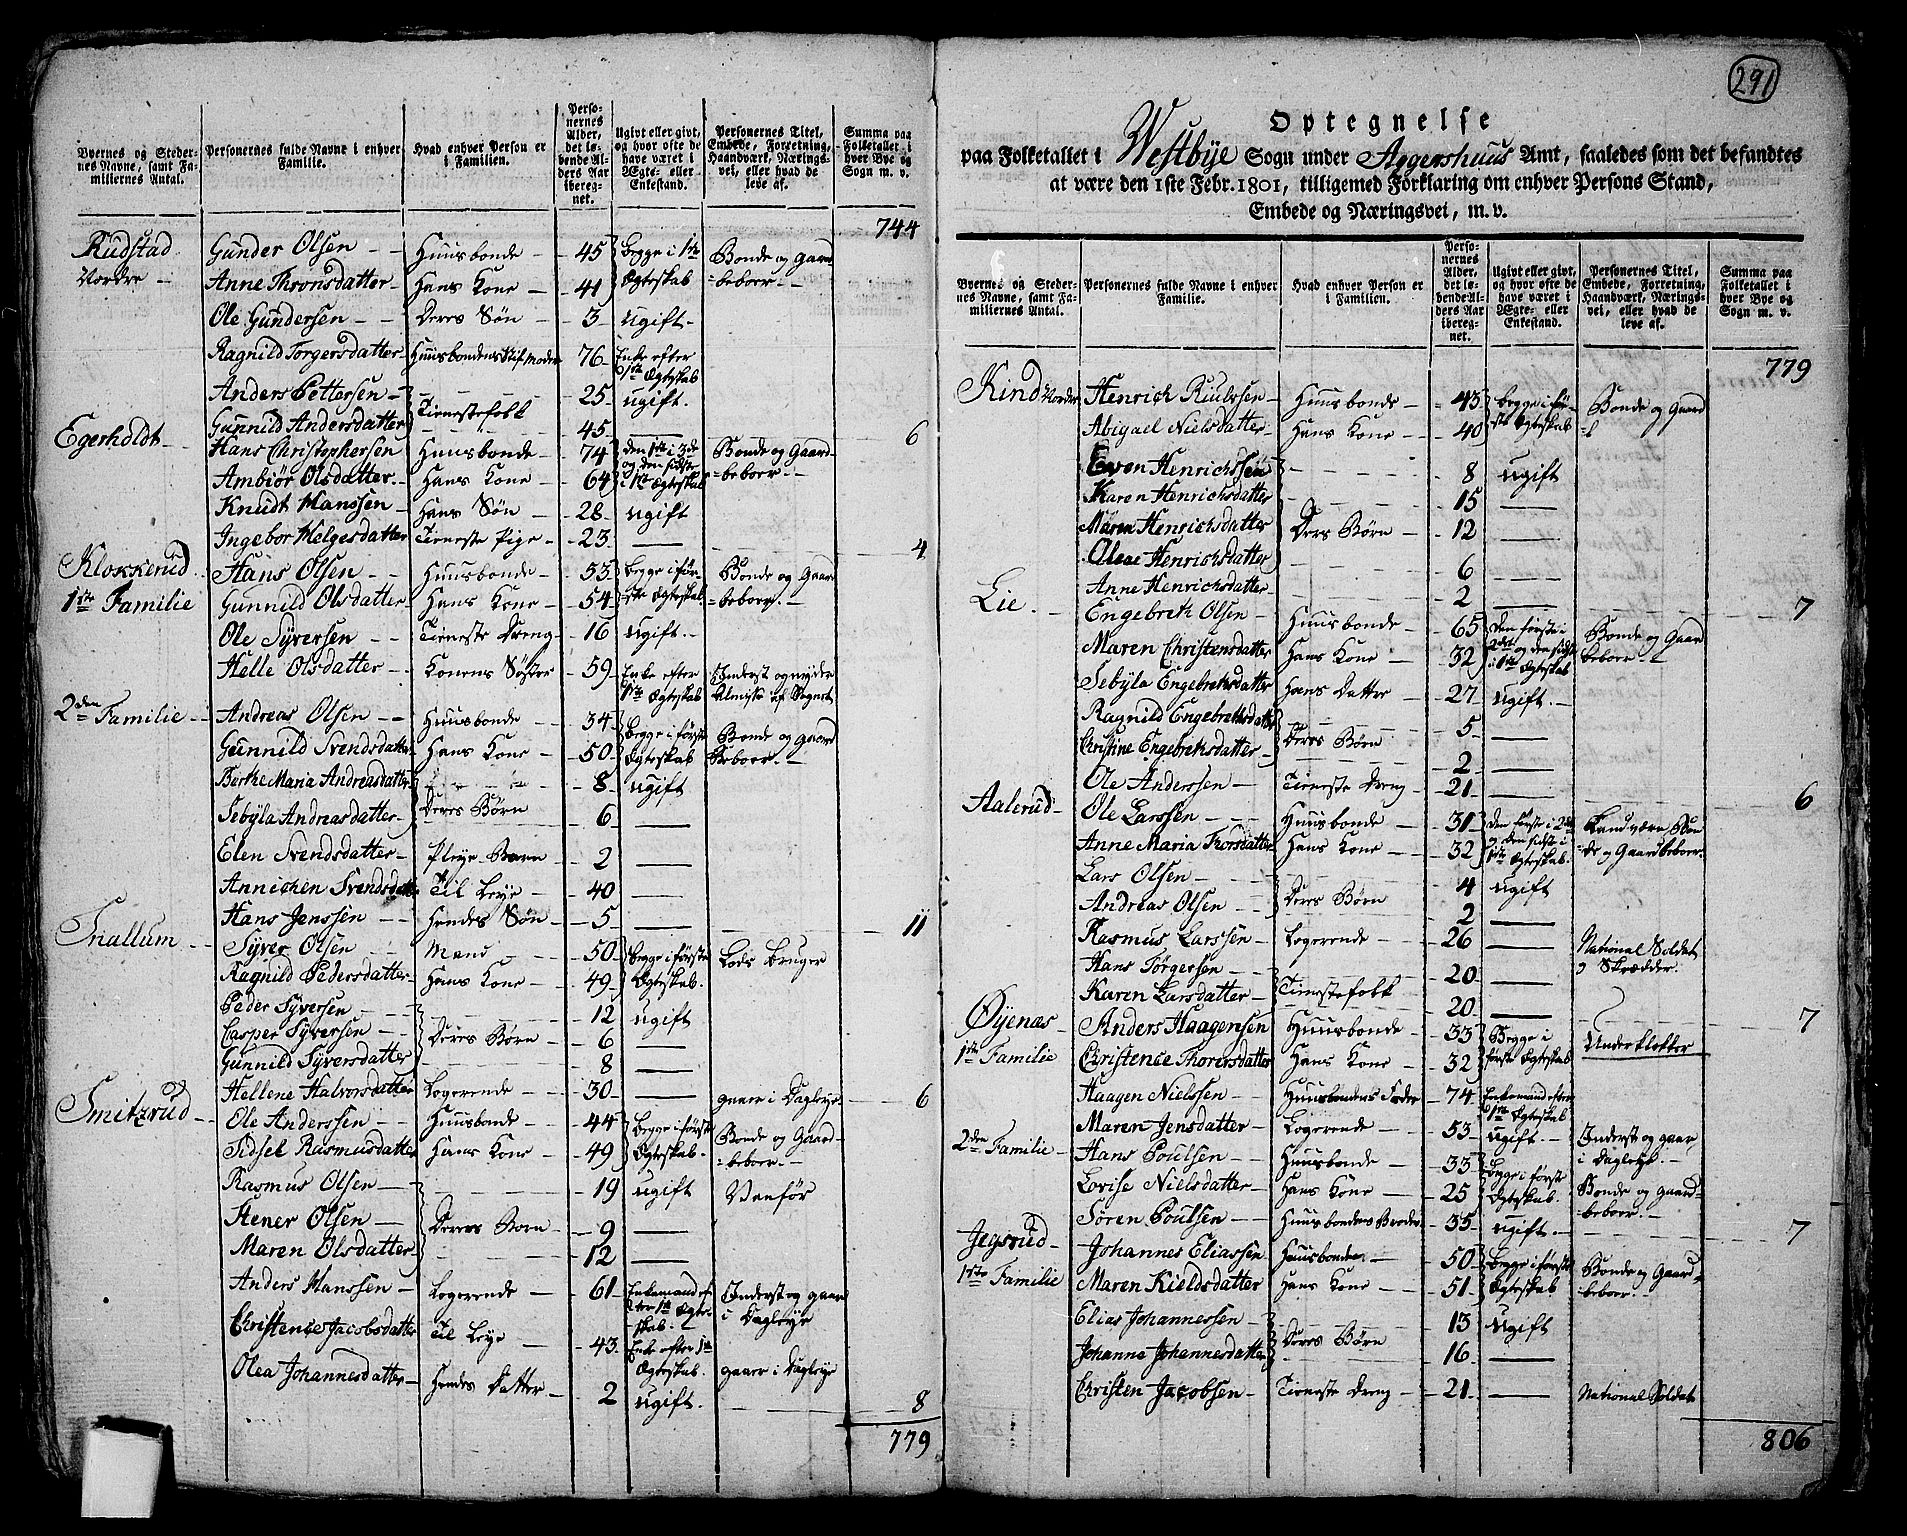 Byernes og Steder-
nes Navne, samt Fa-
miliernes Antal.
Personernes fulde Navne i enhver
Familie.
Hvad enhver Person er
i Familien.
Perso-
nernes
Alder,
det lø-
bende Al-
ders Aar
iberegnet.
Ugivt eller givt,
og hvor ofte de
have været i
Ægte- eller
Enkestand.
Personernes Titel,
Embede, Forretning,
Haandværk, Nærings-
vei, eller hvad de
leve af.
Summa paa
Folketallet i
hver Bye og
Sogn m. v.
744
Rudstad Gunder Olsen Huusbonde 45 begge i 1ste Bonde og Gaard-
Nordre Anne Thronsdatter Hans Kone 41 Ægteskab beboer
Ole Gundersen Deres Søn 3 ugift
Ragnild Torgersdatter Huusbondens Stif moder 76 Enke efter 1ste Ægteskab
Anders Pettersen 25 ugift
Gunnild Andersdatter Tienestefolk 45 — 6
Egerholdt Hans Christophersen Huusbonde 74 den 1ste i 3de Bonde og Gaard-
og den sidste
Ambiør Olsdatter Hans Kone 64 i 1ste Ægteskab beboer
Knudt Hanssen Hans Søn 28 ugift
Ingebor Helgesdatter Tieneste Pige 23 — 4
Klokkerud Hans Olsen Huusbonde 53 begge i før- Bonde og Gaard
1ste Familie Gunnild Olsdatter Hans Kone 54 ste Ægteskab beboer
Ole Syversen Tieneste Dreng 16 ugift
Helle Olsdatter Konens Søster 59 Enke efter Inderst og nyder
1ste Ægteskab Almisse af Sognet
2den Familie Andreas Olsen Huusbonde 34 begge i første Bonde og Gaard
Gunnild Svendsdatter Hans Kone 50 Ægteskab beboer
Berthe Maria Andreasdatter 8 ugift
Sebÿla Andreasdatter Deres Børn 6 —
Elen Svendsdatter Pleye Barn 2 —
Annichen Svendsdatter Til Leye 40 —
Hans Jenssen Hendes Søn 5 — 11
Syver Olsen Mand 50 begge i første Lods Bruger
Ragnild Pedersdatter Hans Kone 49 Ægteskab
Peder Syversen 12 ugift
Casper Syversen Deres Børn 6 —
Gunnild Syversdatter 8 —
Hellene Halvorsdatter Logerende 30 — gaaer i Dagleye 6
Smitzrud Ole Anderssen Huusbonde 44 begge i første Bonde og Gaard-
Sidsel Rasmusdatter Hans Kone 49 Ægteskab beboer
Rasmus Olsen 19 ugift Vanfør
Stener Olsen Deres Børn 9 —
Maren Olsdatter 12 —
Anders Hanssen Logerende 61 Enkemand ef- Inderst og gaaer
ter 1ste Ægte- i Dagleye
skab
Christence Jacobsdatter Til Leye 43 Enke efter 1ste
Ægteskab gaaer i Dagleye
Olea Johannesdatter Hendes Datter 2 ugift 8
779
291
Optegnelse
paa Folketallet i Westbÿe Sogn under Aggershuus Amt, saaledes som det befandtes
at være den 1ste Febr. 1801, tilligemed Forklaring om enhver Persons Stand,
Embede og Næringsvei, m. v.
Byernes og Steder-
nes Navne, samt Fa-
miliernes Antal.
Personernes fulde Navne i enhver
Familie.
Hvad enhver Person er
i Familien.
Perso-
nernes
Alder,
det lø-
bende Al-
ders Aar
iberegnet.
Ugivt eller givt,
og hvor ofte de
have været i
Ægte- eller
Enkestand.
Personernes Titel,
Embede, Forretning,
Haandværk, Nærings-
vei, eller hvad de
leve af.
Summa paa
Folketallet i
hver Bye og
Sogn m. v.
779
Kind Nordre Henrich Huusbonde 43 begge i før- Bonde og Gaard
Abigael Nielsdatter Hans Kone 40 ste Ægteskab
Even Henrichssen 8 ugift
Karen Henrichsdatter 15 —
Maren Henrichsdatter Deres Børn 12 —
Oleae Henrichsdatter 6 —
Anne Henrichsdatter 2 — 7
Lie Engebreth Olsen Huusbonde 65 den første i Bonde og Gaard
2det og den sidste
Maren Christensdatter Hans Kone 32 i 1ste Ægteskab beboer
Sebÿla Engebrethsdatter Hans Datter 27 ugift
Ragnild Engebrethsdatter 5 —
Christine Engebrethsdatter Deres Børn 2 —
Ole Anderssen Tieneste Dreng 21 — 6
Aalerud Ole Larssen Huusbonde 31 den første i 2det Landværn Bon-
og den sidste i
Anne Maria Thorsdatter Hans Kone 32 1ste Ægteskab de og Gaardbeboer
Lars Olsen 4 ugift
Andreas Olsen Deres Børn 2 —
Rasmus Larssen Logerende 26 — National Soldat
og Skrædder
Hans Torgersen 20 —
Karen Larsdatter Tienestefolk 20 — 7
Øÿenæs Anders Haagensen Huusbonde 33 Begge i Underklokker
1ste Familie Christence Thorersdatter Hans Kone 32 første Ægteskab
Haagen Nielssen Huusbondens Fader 74 Enkemand efter
1ste Ægteskab
Maren Jensdatter Logerende 53 ugift Inderst og gaaer
i Dagleye
2den Familie Hans Poulsen Huusbonde 33 begge i første
Lovise Nielsdatter Hans Kone 25 Ægteskab Bonde og Gaard-
beboer
Søren Poulsen Huusbondens Broder 35 ugift 7
Jegsrud Johannes Eliassen Huusbonde 50 begge i første Bonde og Gaard
1ste Familie Maren Kieldsdatter Hans Kone 51 Ægteskab beboer
Elias Johannessen 13 ugift
Johanne Johannesdatter Deres Børn 16 —
Christen Jacobsen Tieneste Dreng 21 — National Soldat
806